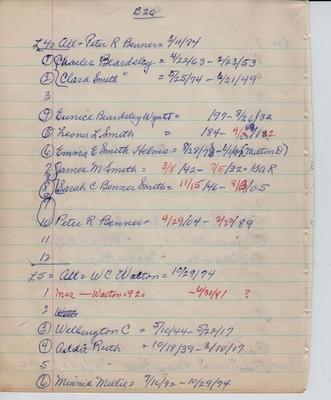 B26
L4 = All = Peter R Benner = 3/11/74
① Charles Beardsley = 4/22/63 - 2/23/53
② Clara Smith " = 5/25/74 - 6/21/49
3
④ Eunice Beardsley Wyatt = /97 - 3/26/32
⑤ Leona L Smith = /84 -
⑥ Emma E Smith Helms = (Milton D)
7 James M Smith = 3/8/42 - 7/5/32 = GAR
⑧ Sarah C Benner Smith = 11/15/46 - /05
9
10 Peter R Benner = 4/29/04 - 2/29/89
11
12
L5 = All = W C Watton = 10/29/74
1 Mrs — Watton = 92 = - 6/30/41 ?
2
③ Welbington C = 5/10/44 - 5/22/17
④ Addie Ruth = 10/18/39 - 2/18/17
5
⑥ Minnie Mellie = 7/16/92 - 10/29/74